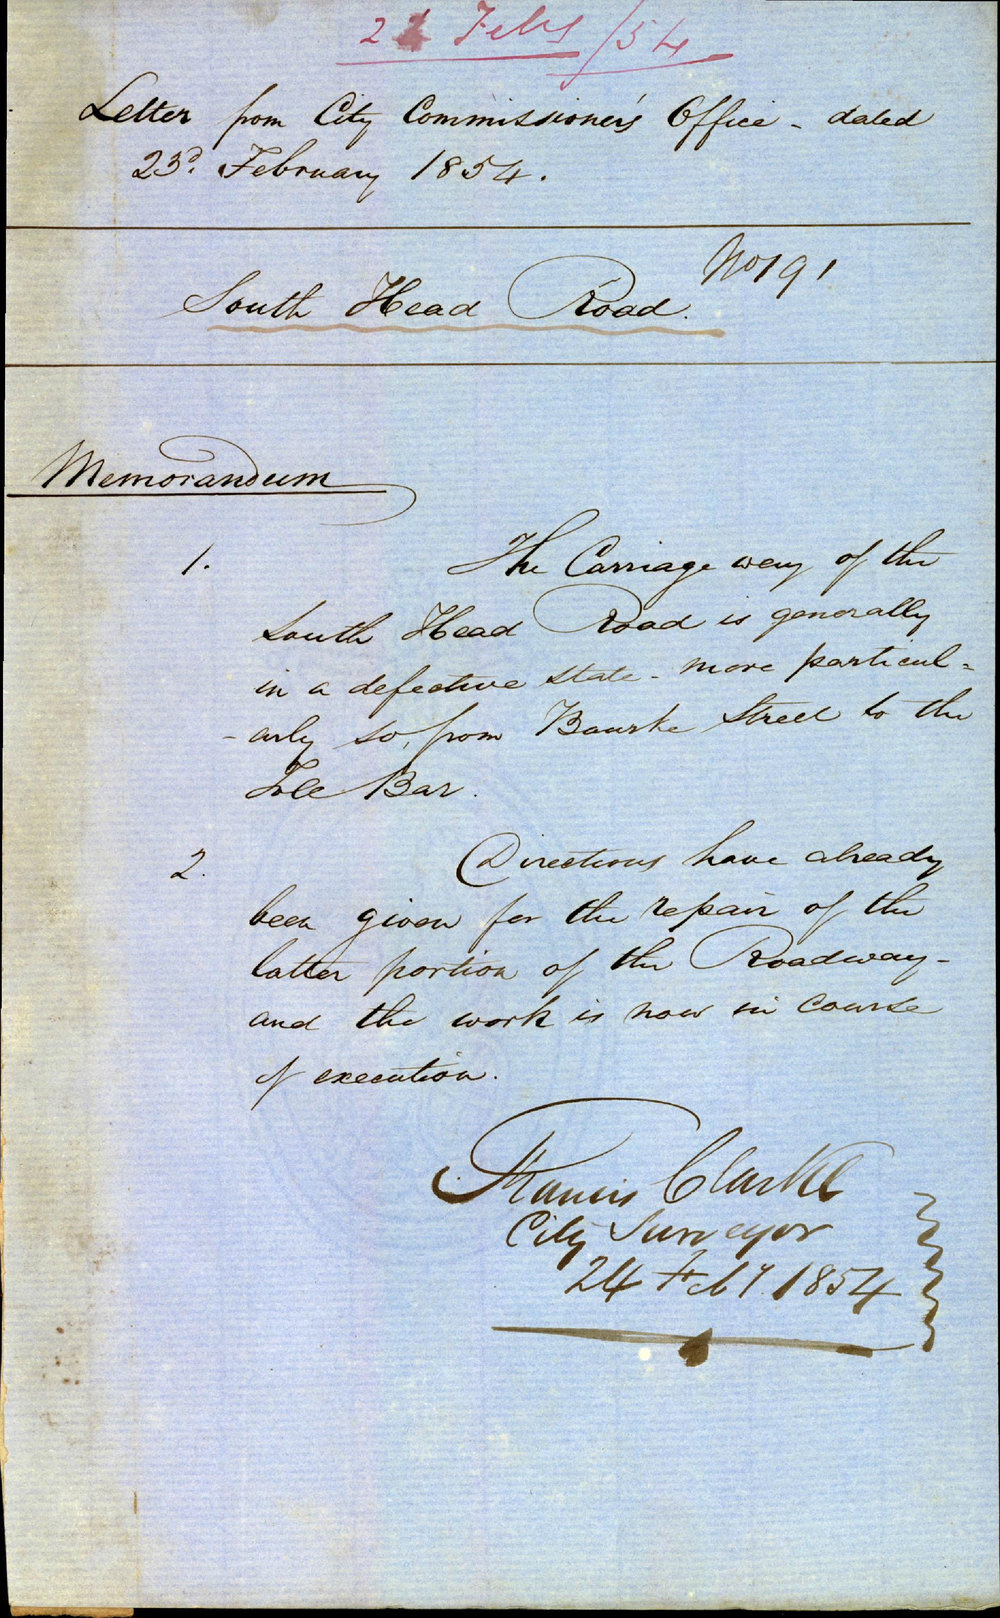 24 Feby /54
Letter from City Commissioner's Office - dated
23d. February 1854.
No 191
South Head Road.
Memorandum
1. The Carriage way of the
South Head Road is generally
in a defective state - more particul=
-arly so, from Bourke Street to the
Tole Bar.
2. Directions have already
been given for the repair of the
latter portion of the Roadway -
and the work is now in course
of execution.
Francis Clarke
City Surveyor
24 Feby. 1854